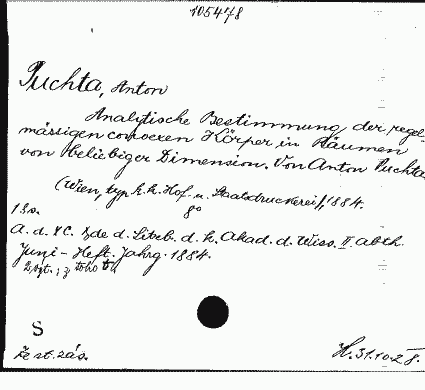 105478
Puchta, Anton
Analytische Bestimmung der regel-
mässigen convexen Körper in Räumen
von beliebiger Dimension. Von Anton Puchta.
(Wien, typ k. k. Hof- u. Staatsdruckerei), 1884.
8°
A. d. XC. Bde d. Sitzb. d. k. Akad. d. Wiss. II abth.
Juni-Heft. Jahrg. 1884.
S
H. 31.10.28.